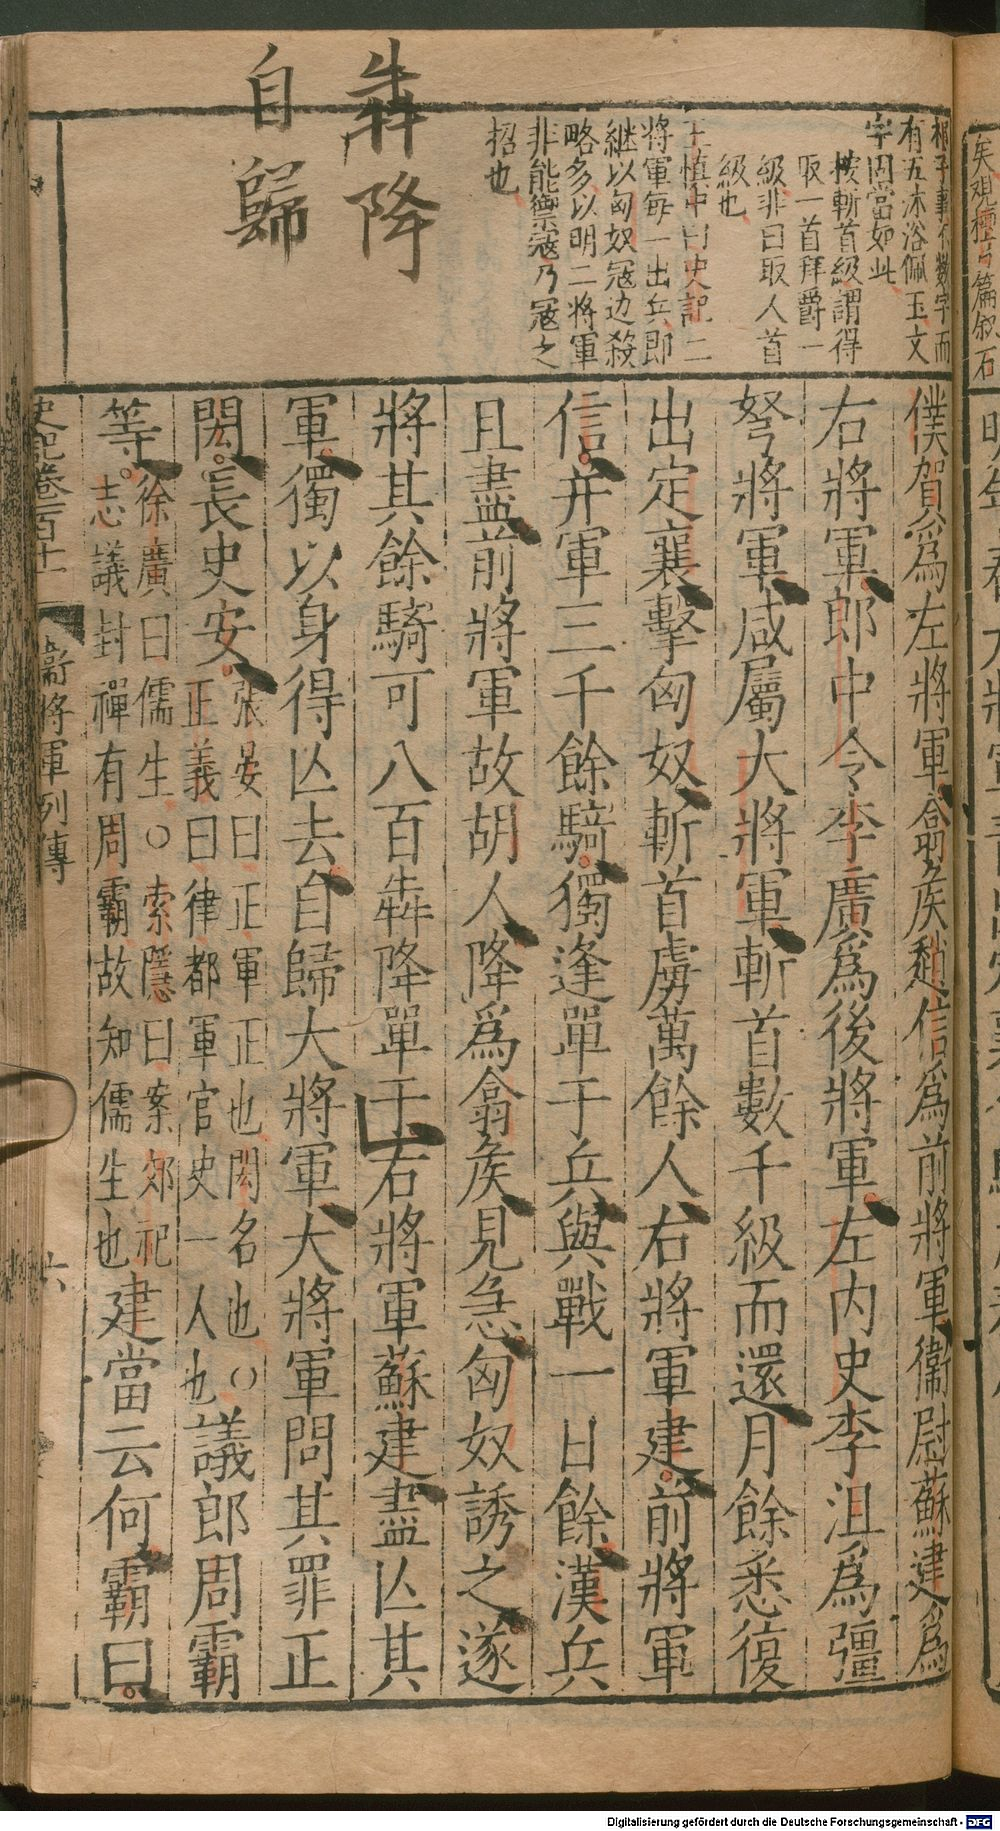 根子事不數字而
有五沐浴佩玉文
字固當如此
按斬首級謂得
取一首拜爵一
級非曰取人首
級也
王慎中曰史記二
將軍每一出兵即
继以匈奴寇边殺
略多以明二將軍
非能禦寇乃寇之
招也
犇降
自歸
僕賀爲左將軍翕矦趙信爲前將軍衞尉蘇建爲
右將軍郎中令李廣爲後將軍左内史李沮爲彊
弩將軍咸屬大將軍斬首數千級而還月餘悉復
出定襄擊匈奴斬首虜萬餘人右將軍建前將軍
信并軍三千餘騎獨逢單于兵與戰一日餘漢兵
且盡前將軍故胡人降爲翕矦見急匈奴誘之遂
將其餘騎可八百犇降單于右將軍蘇建盡亾其
軍獨以身得亾去自歸大將軍大將軍問其罪正
閎長史安張晏曰正軍正也閎名也○正義曰律都軍官史一人也議郎周霸
等徐廣曰儒生○索隱曰案郊祀志議封禪有周霸故知儒生也建當云何霸曰
史記卷百十一 衞將軍列傳 六
Digitalisierung gefördert durch die Deutsche Forschungsgemeinschaft - DFG